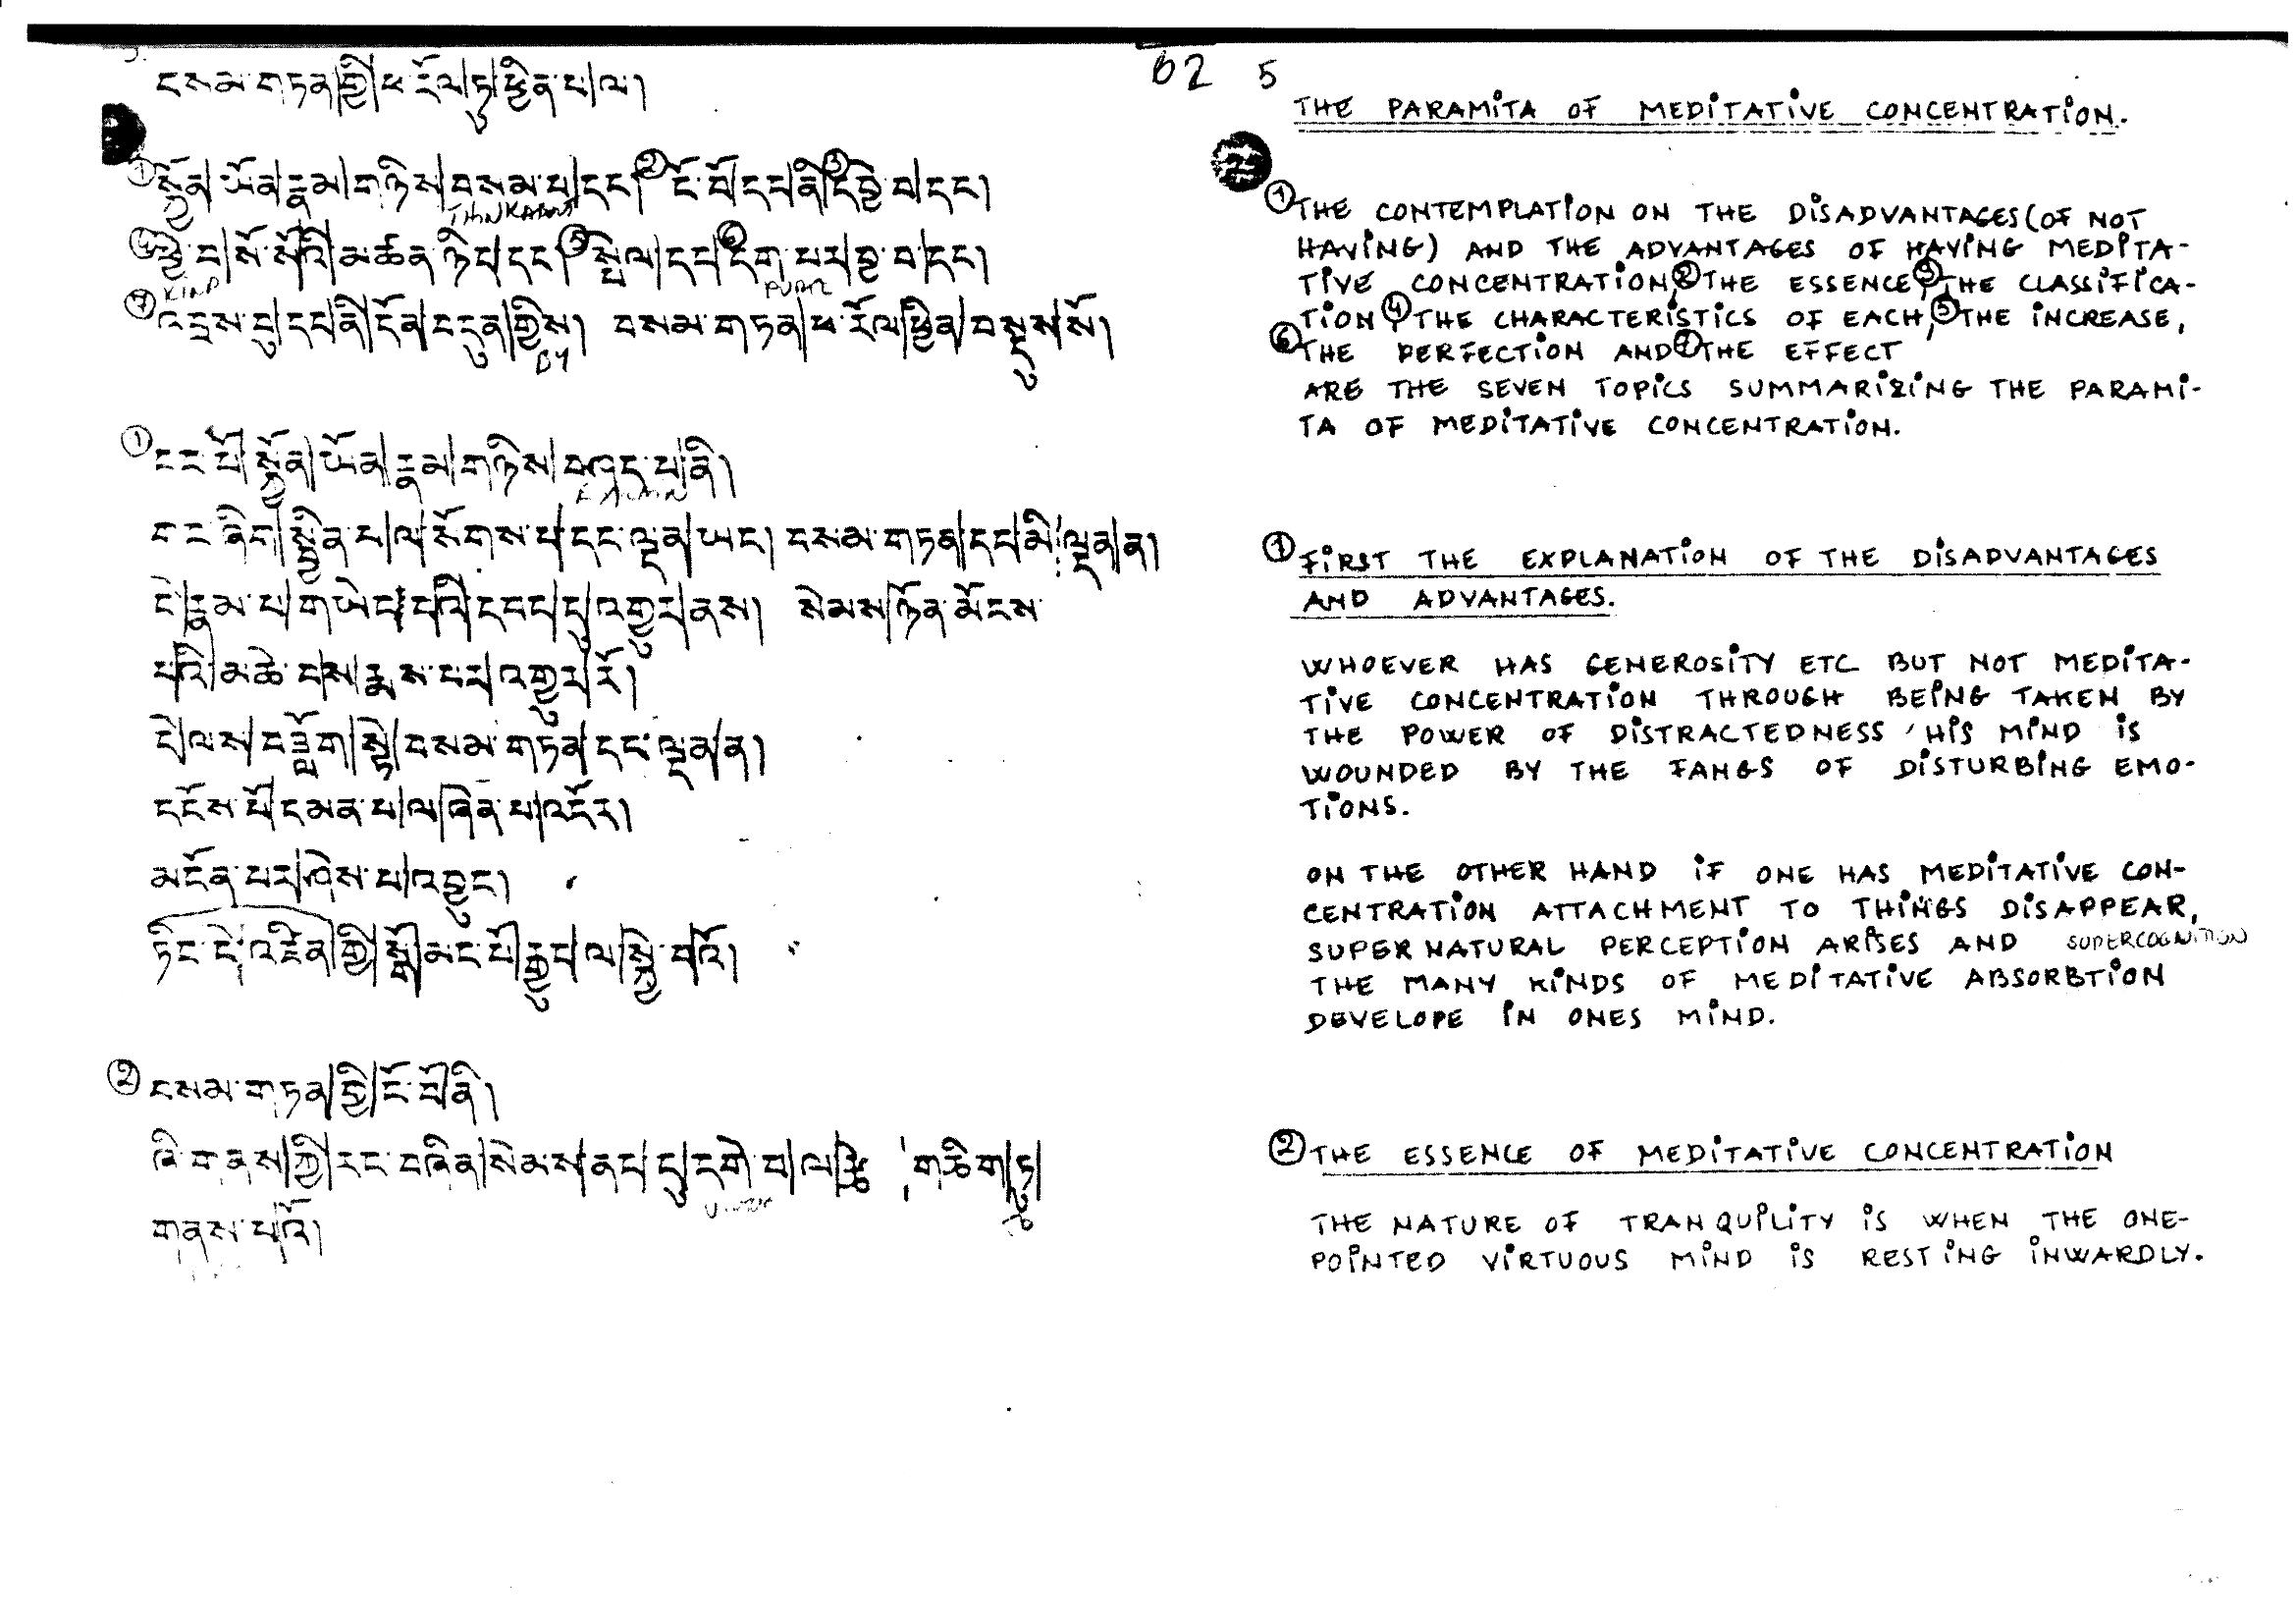 བསམ་གཏན་གྱི་ཕ་རོལ་ཏུ་ཕྱིན་པ་ལ།
① སྐྱོན་ཡོན་རྣམ་གཉིས་བསམ་པ་དང་། ② ངོ་བོ་དང་ནི་ ③ དབྱེ་བ་དང་།
THINK ABOUT
④ དབྱེ་བ་སོ་སོའི་མཚན་ཉིད་དང་། ⑤ སྤེལ་དང་ ⑥ དག་པར་བྱ་བ་དང་།
KIND
⑦ འབྲས་བུ་དང་ནི་དོན་བདུན་གྱིས། བསམ་གཏན་ཕ་རོལ་ཕྱིན་བསྡུས་སོ།
BY
① དང་པོ་སྐྱོན་ཡོན་རྣམ་གཉིས་བཤད་པ་ནི།
གང་ཞིག་སྦྱིན་པ་ལ་སོགས་པ་དང་ལྡན་ཡང་། བསམ་གཏན་དང་མི་ལྡན་ན།
དེ་རྣམ་པ་གཡེང་བའི་དབང་དུ་འགྱུར་ནས། སེམས་ཉོན་མོངས་
པའི་མཆེ་བས་རྨས་པར་འགྱུར་རོ།
དེ་ལས་བཟློག་སྟེ་བསམ་གཏན་དང་ལྡན་ན།
དངོས་པོ་དམན་པ་ལ་ཞེན་པ་འདོར།
མངོན་པར་ཤེས་པ་འབྱུང་།
ཏིང་ངེ་འཛིན་གྱི་སྒོ་མང་པོ་རྒྱུད་ལ་སྐྱེ་བའོ།
② བསམ་གཏན་གྱི་ངོ་བོ་ནི།
ཞི་གནས་ཀྱི་རང་བཞིན་སེམས་ནང་དུ་དགེ་བ་ལ་རྩེ་གཅིག་ཏུ་
གནས་པའོ།
62 5
THE PARAMITA OF MEDITATIVE CONCENTRATION.
① THE CONTEMPLATION ON THE DISADVANTAGES (OF NOT
HAVING) AND THE ADVANTAGES OF HAVING MEDITA-
TIVE CONCENTRATION, ② THE ESSENCE, ③ THE CLASSIFICA-
TION, ④ THE CHARACTERISTICS OF EACH, ⑤ THE INCREASE,
⑥ THE PERFECTION AND ⑦ THE EFFECT
ARE THE SEVEN TOPICS SUMMARIZING THE PARAMI-
TA OF MEDITATIVE CONCENTRATION.
① FIRST THE EXPLANATION OF THE DISADVANTAGES
AND ADVANTAGES.
WHOEVER HAS GENEROSITY ETC BUT NOT MEDITA-
TIVE CONCENTRATION THROUGH BEING TAKEN BY
THE POWER OF DISTRACTEDNESS, HIS MIND IS
WOUNDED BY THE FANGS OF DISTURBING EMO-
TIONS.
ON THE OTHER HAND IF ONE HAS MEDITATIVE CON-
CENTRATION ATTACHMENT TO THINGS DISAPPEAR,
SUPERNATURAL PERCEPTION ARISES AND SUPERCOGNITION
THE MANY KINDS OF MEDITATIVE ABSORBTION
DEVELOPE IN ONES MIND.
② THE ESSENCE OF MEDITATIVE CONCENTRATION
THE NATURE OF TRANQUILITY IS WHEN THE ONE-
POINTED VIRTUOUS MIND IS RESTING INWARDLY.